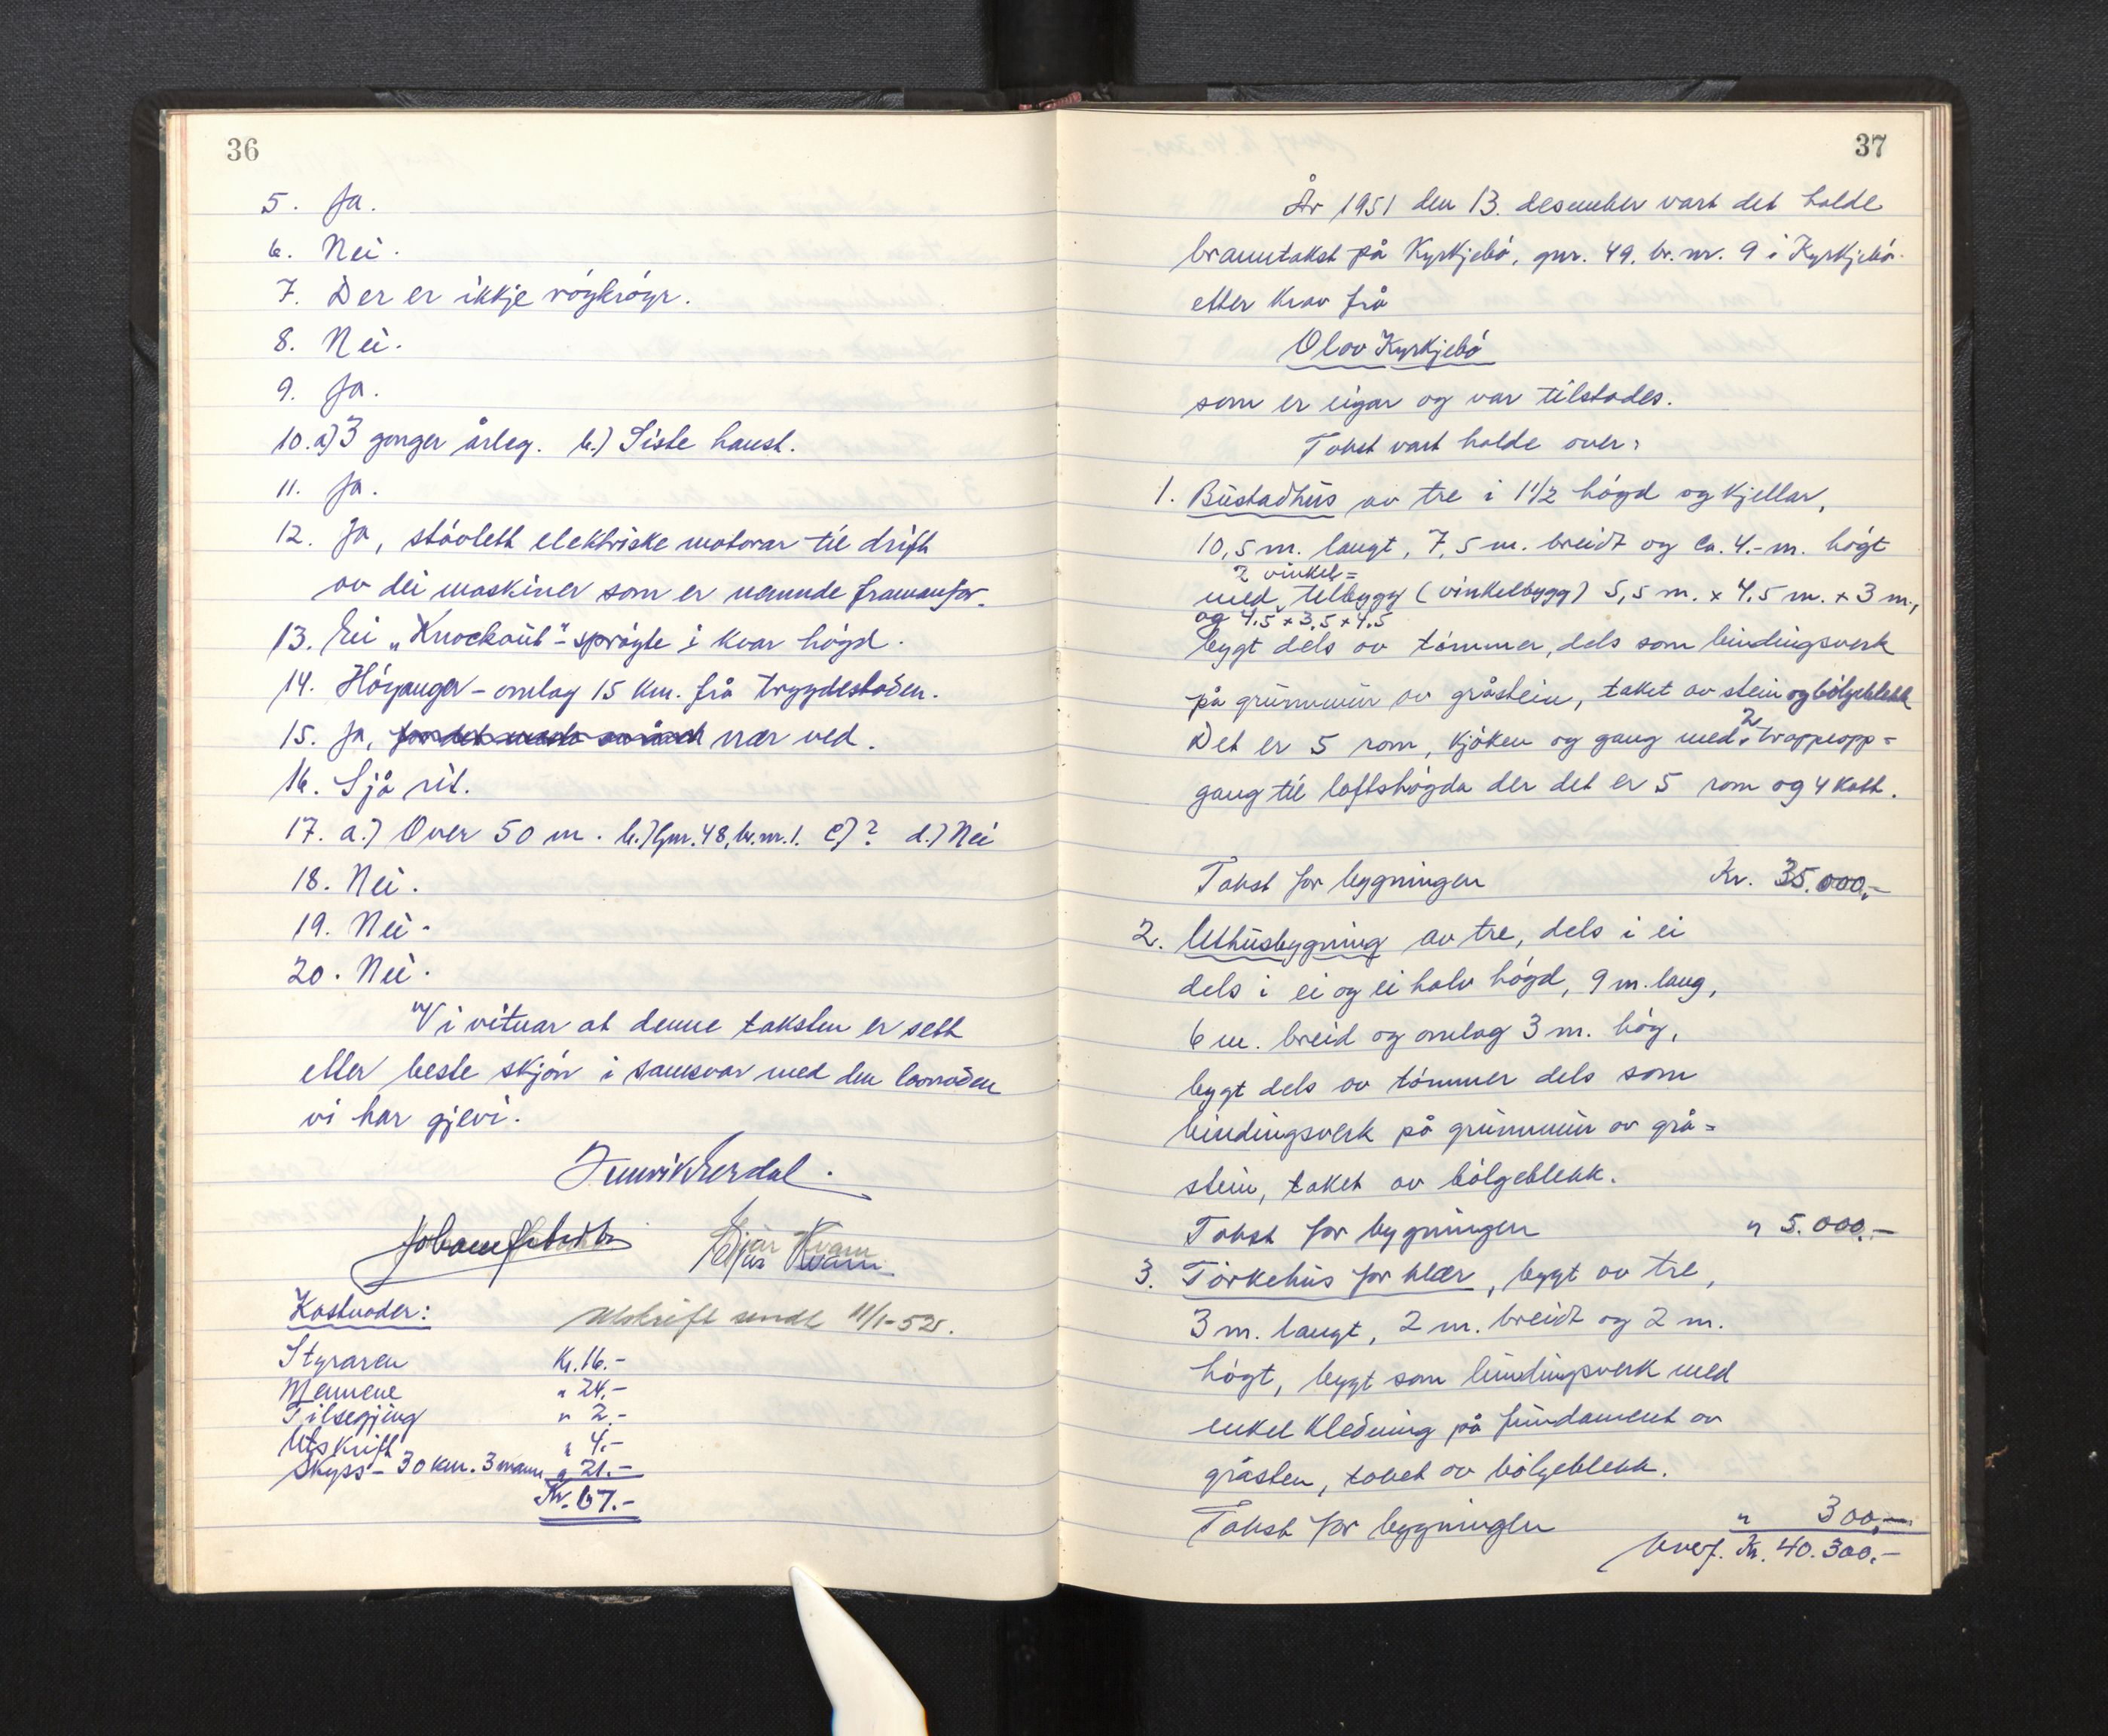 36
5. Ja.
6. Nei.
7. Der er ikkje röykröyr.
8. Nei.
9. Ja.
10. a) 3 gonger årleg. b.) Siste haust.
11. Ja.
12. Ja, stövlett elektriske motorar til drift
av dei maskiner som er nemnde framanfor.
13. Ei „Knockout"-spröyte i kvar högd.
14. Höyanger - omlag 15 km. frå trygdestaden.
15. Ja, nær ved.
16. Sjå rit.
17. a.) Over 50 m. b.) Gnr. 48, br.nr. 1. c) ? d.) Nei
18. Nei.
19. Nei.
20. Nei.
Vi vitnar at denne taksten er sett
etter beste skjön i samsvar med den lovnaden
vi har gjevi.
Kvam
Kvam
Kostnader:
Utskrift sendt 11/1-52.
Styraren Kr. 16.-
Mennene " 24.-
Tilsegjing " 2.-
Utskrift " 4.-
Skyss - 30 km. 3 mann " 21.-
Kr. 67.-
37
År 1951 den 13. desember vart det halde
branntakst på Kyrkjebö, gnr. 49, br. nr. 9 i Kyrkjebö.
etter krav frå
Olav Kyrkjebö
som er eigar og var tilstades.
Takst vart halde over:
1. Bustadhus av tre i 1 1/2 högd og kjellar,
10,5 m. langt, 7,5 m. breidt og ca. 4.- m. högt
2 vinkel=
med tilbygg (vinkelbygg) 5,5 m. x 4,5 m. x 3 m.,
og 4,5 x 3,5 x 4,5
bygt dels av tömmer, dels som bindingsverk
på grunnmur av gråstein, taket av stein og bölgeblekk
Det er 5 rom, kjöken og gang med 2 trappeopp=
gang til loftshögda der det er 5 rom og 4 kott.
Takst for bygningen Kr. 35.000,-
2. Uthusbygning av tre, dels i ei
dels i ei og ei halv högd, 9 m. lang,
6 m. breid og omlag 3 m. hög,
bygt dels av tömmer dels som
bindingsverk på grunnmur av grå=
stein, taket av bölgeblekk.
Takst for bygningen " 5.000.-
3. Törkehus for klær, bygt av tre,
3 m. langt, 2 m. breidt og 2 m.
högt, bygt som bindingsverk med
enkel kledning på fundament av
gråsten, taket av bölgeblekk.
Takst for bygningen " 300,-
Overf. Kr. 40.300.-